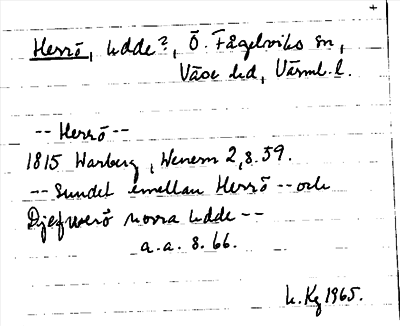 Herrö, udde?, Ö. Fågelviks sn,
Väse hd, Värml. l.
-- Herrö --
1815 Warberg, Wenern 2, s. 59.
-- Sundet emellan Herrö -- och
Djefwerö norra udde --
a.a. s. 66.
k. Kg 1965.